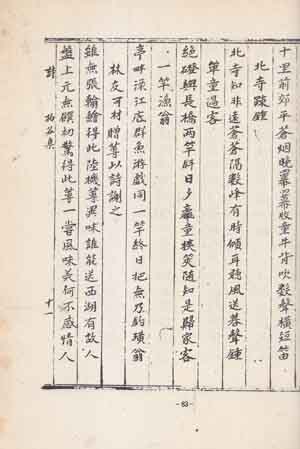 十里前郊平蒼烟晚羃羃牧牛背吹數聲橫短笛
北寺踈鍾
北寺知非遠蒼蒼隔數峰有時傾耳聽風送暮聲鍾
童過客
絕磴長橋兩竿斜日夕童笑随知是歸家客
一竿漁翁
亭畔深江底群魚游戱同一竿終日把無乃釣璜翁
林友可材贈蓴以詩謝之
雖無張翰繪得此陸機蓴異味誰能送西湖有故人
盤上元無饌初驚得此蓴一嘗風味美何不感情人
詩 集 十一
-83-